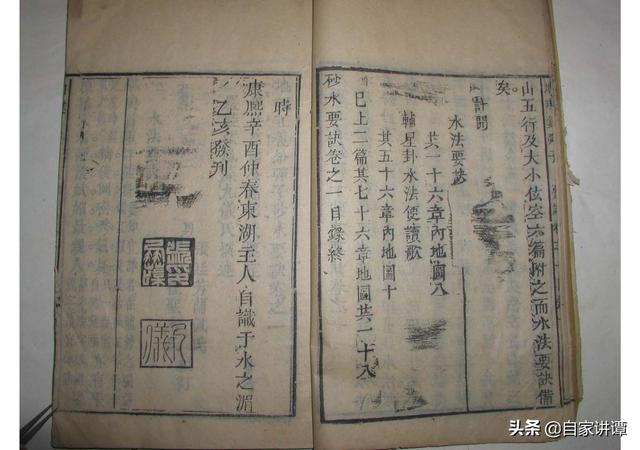 山五行及大小伭空六篇附之而水法要訣備
矣。
計開
水法要訣
共一十六章內地圖八
輔星卦水法便讀歌
共五十六章內地圖十
已上二篇共七十六章地圖共一十八
砂水要訣卷之一目錄終
時
康熙辛酉仲春東湖主人自識于水之湄
乙亥發刊
九儀
头条 @自家讲谭